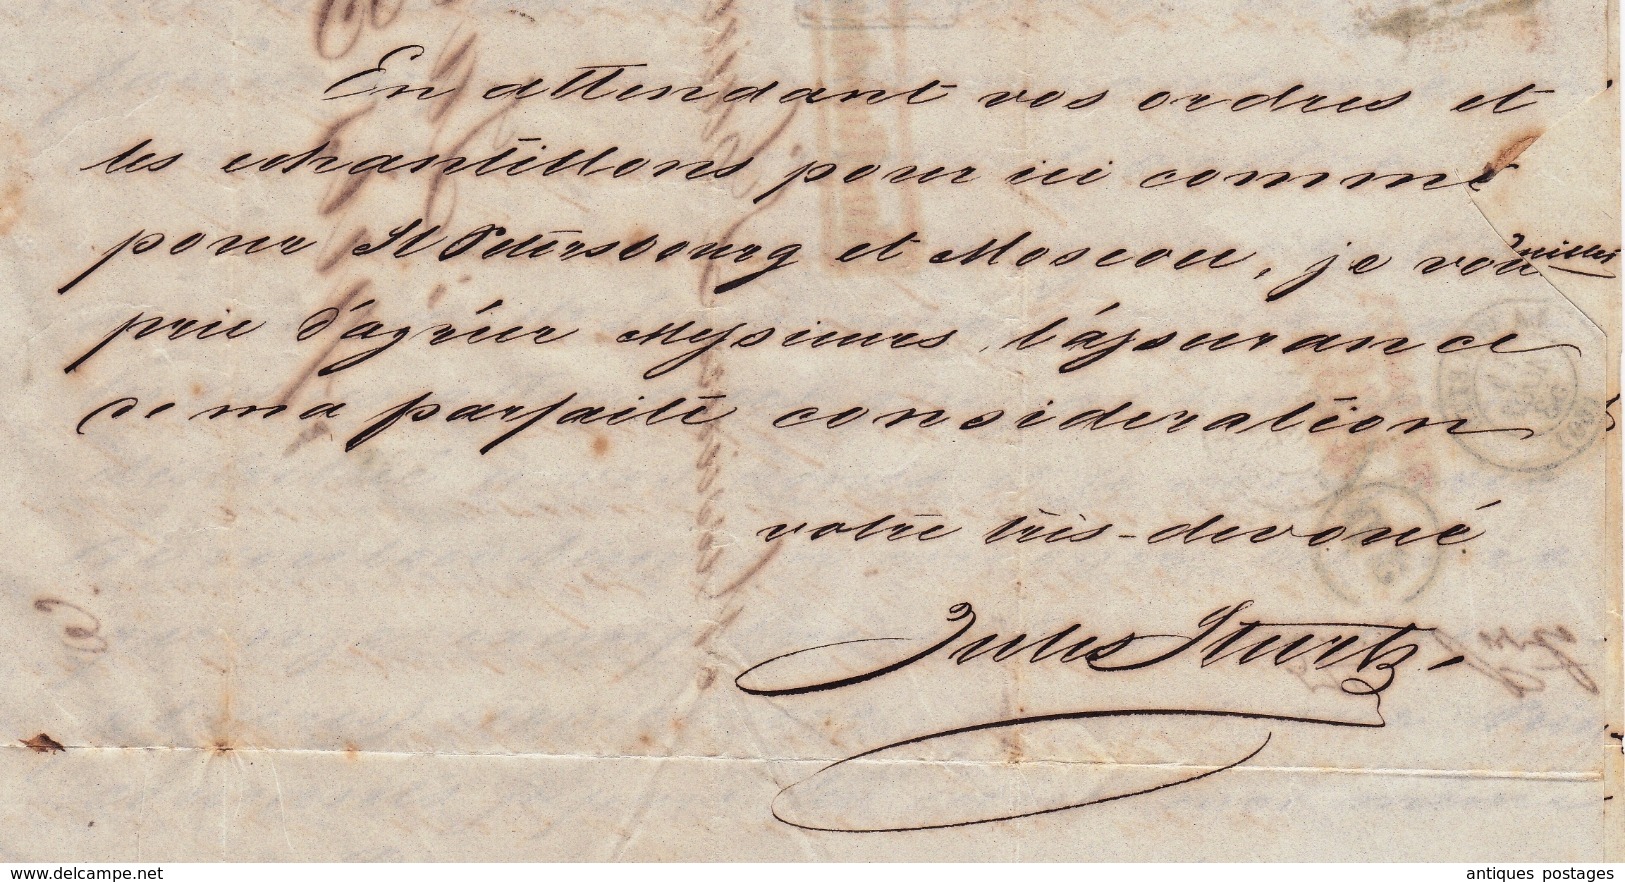 En attendant vos ordres et
les echantillons pour ici comme
pour St Petersbourg et Moscou, je vou
prie d'agréer Messieurs, l'assurance
de ma parfaite considération
votre très-devoué
Jules Sturtz.
www.delcampe.net
antiques postages